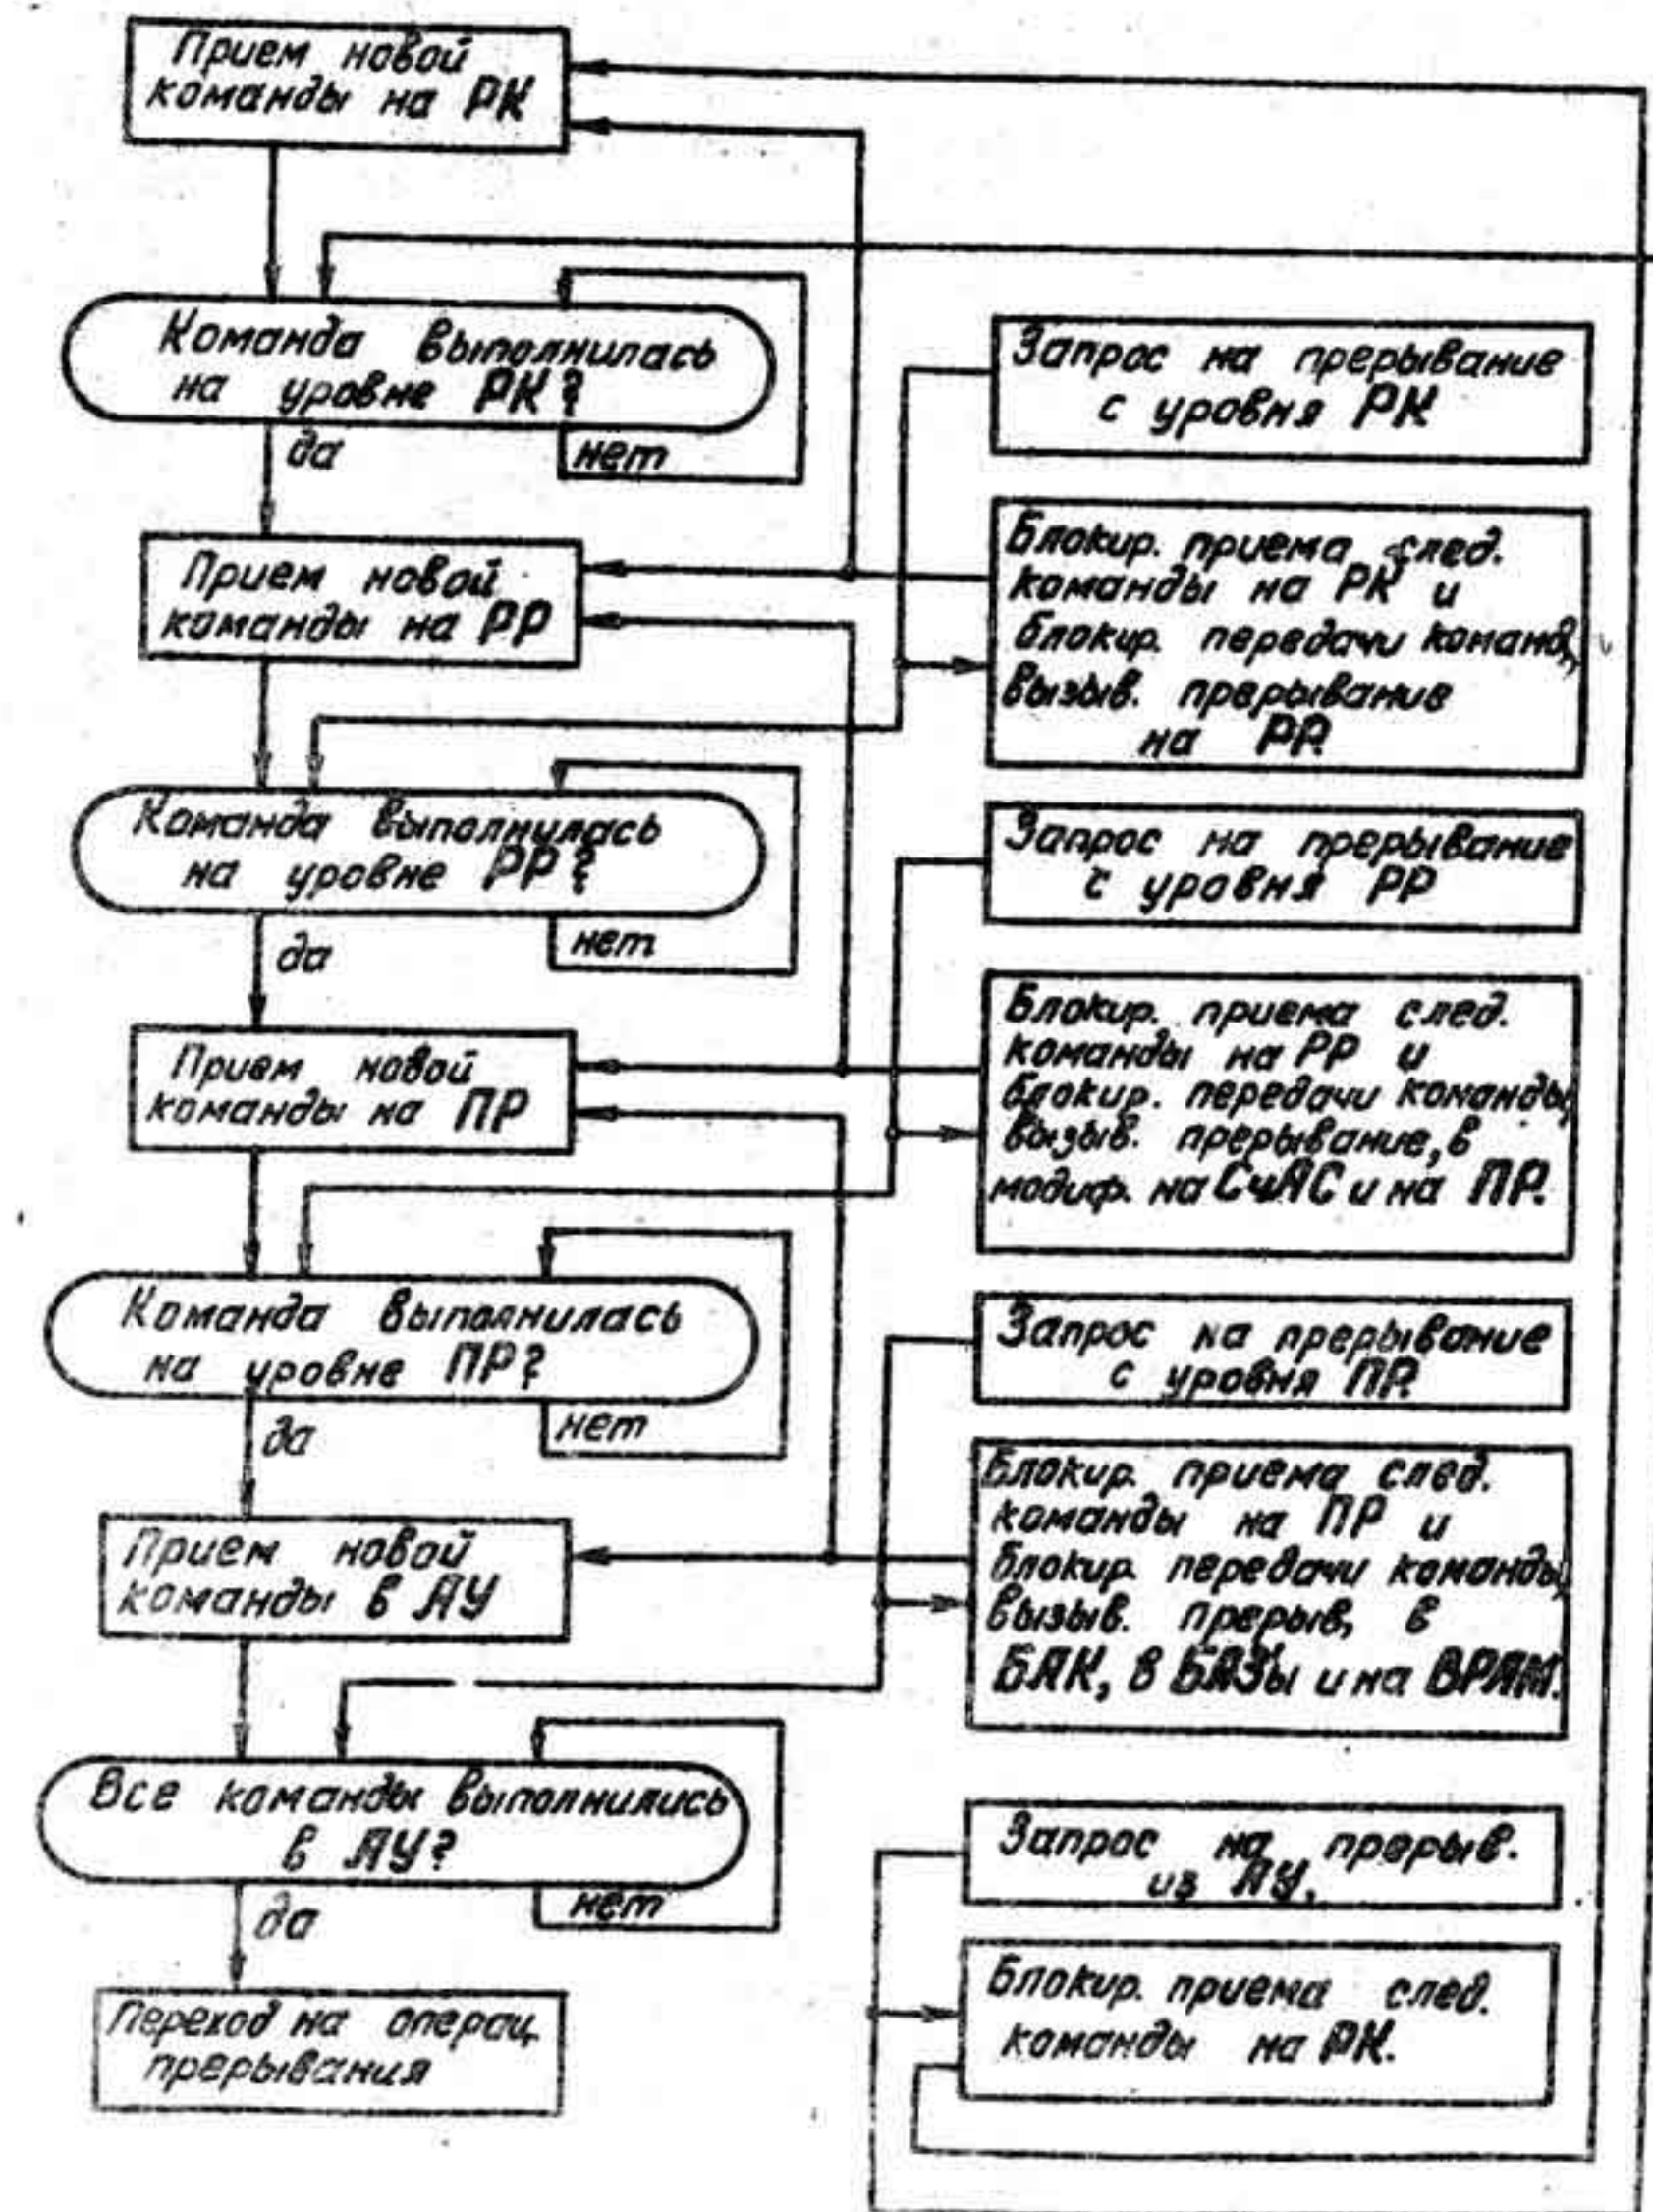 Прием новой
команды на РК
Команда выполнилась
на уровне РК?
да
нет
Прием новой
команды на РР
Команда выполнилась
на уровне РР?
да
нет
Прием новой
команды на ПР
Команда выполнилась
на уровне ПР?
да
нет
Прием новой
команды в АУ
Все команды выполнились
в АУ?
да
нет
Переход на операц.
прерывания
Запрос на прерывание
с уровня РК
Блокир. приема след.
команды на РК и
блокир. передачи команд,
вызыв. прерывание
на РР.
Запрос на прерывание
с уровня РР
Блокир. приема след.
команды на РР и
блокир. передачи команды,
вызыв. прерывание, в
модиф. на СчАС и на ПР.
Запрос на прерывание
с уровня ПР.
Блокир. приема след.
команды на ПР и
блокир. передачи команды,
вызыв. прерыв, в
БАК, в БАЗы и на ВРАМ.
Запрос на прерыв.
из АУ.
Блокир. приема след.
команды на РК.